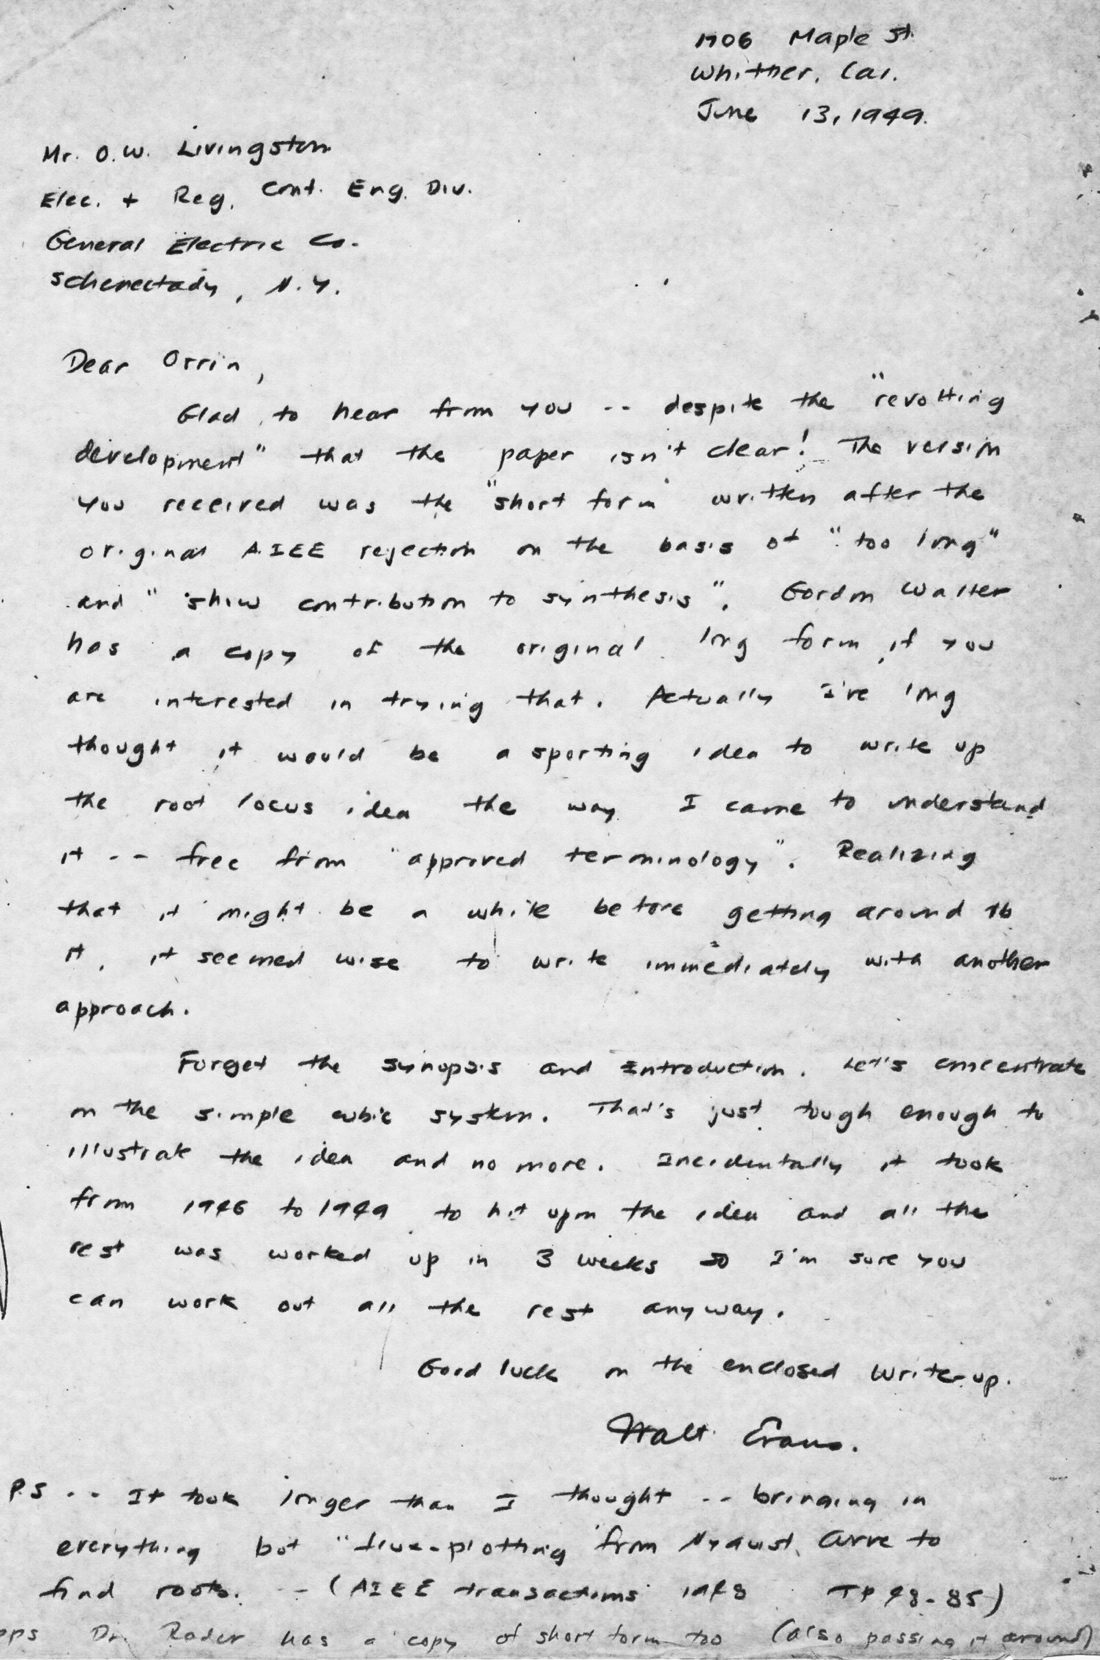 1706 Maple St.
Whittier, Cal.
June 13, 1949.
Mr. O.W. Livingston
Elec. + Reg. Cont. Eng. Div.
General Electric Co.
Schenectady, N.Y.
Dear Orrin,
Glad to hear from you -- despite the "revolting
development" that the paper isn't clear! The version
you received was the "short form" written after the
original AIEE rejection on the basis of "too long"
and "show contribution to synthesis". Gordon Walter
has a copy of the original long form if you
are interested in trying that. Actually I've long
thought it would be a sporting idea to write up
the root locus idea the way I came to understand
it -- free from "approved terminology". Realizing
that it might be a while before getting around to
it, it seemed wise to write immediately with another
approach.
Forget the synopsis and Introduction. Let's concentrate
on the simple cubic system. That's just tough enough to
illustrate the idea and no more. Incidentally it took
from 1946 to 1949 to hit upon the idea and all the
rest was worked up in 3 weeks so I'm sure you
can work out all the rest anyway.
Good luck on the enclosed writer-up.
Walt Evans.
P.S -- It took longer than I thought -- bringing in
everything but "flux-plotting" from Nyquist Curve to
find roots. -- (AIEE transactions 1948 TP 48-85)
pps Dr. Rader has a copy of short form too (also passing it around)